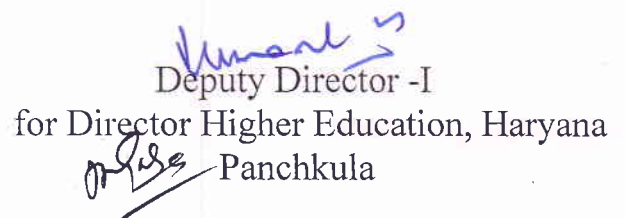 Deputy Director -I
for Director Higher Education, Haryana
Panchkula